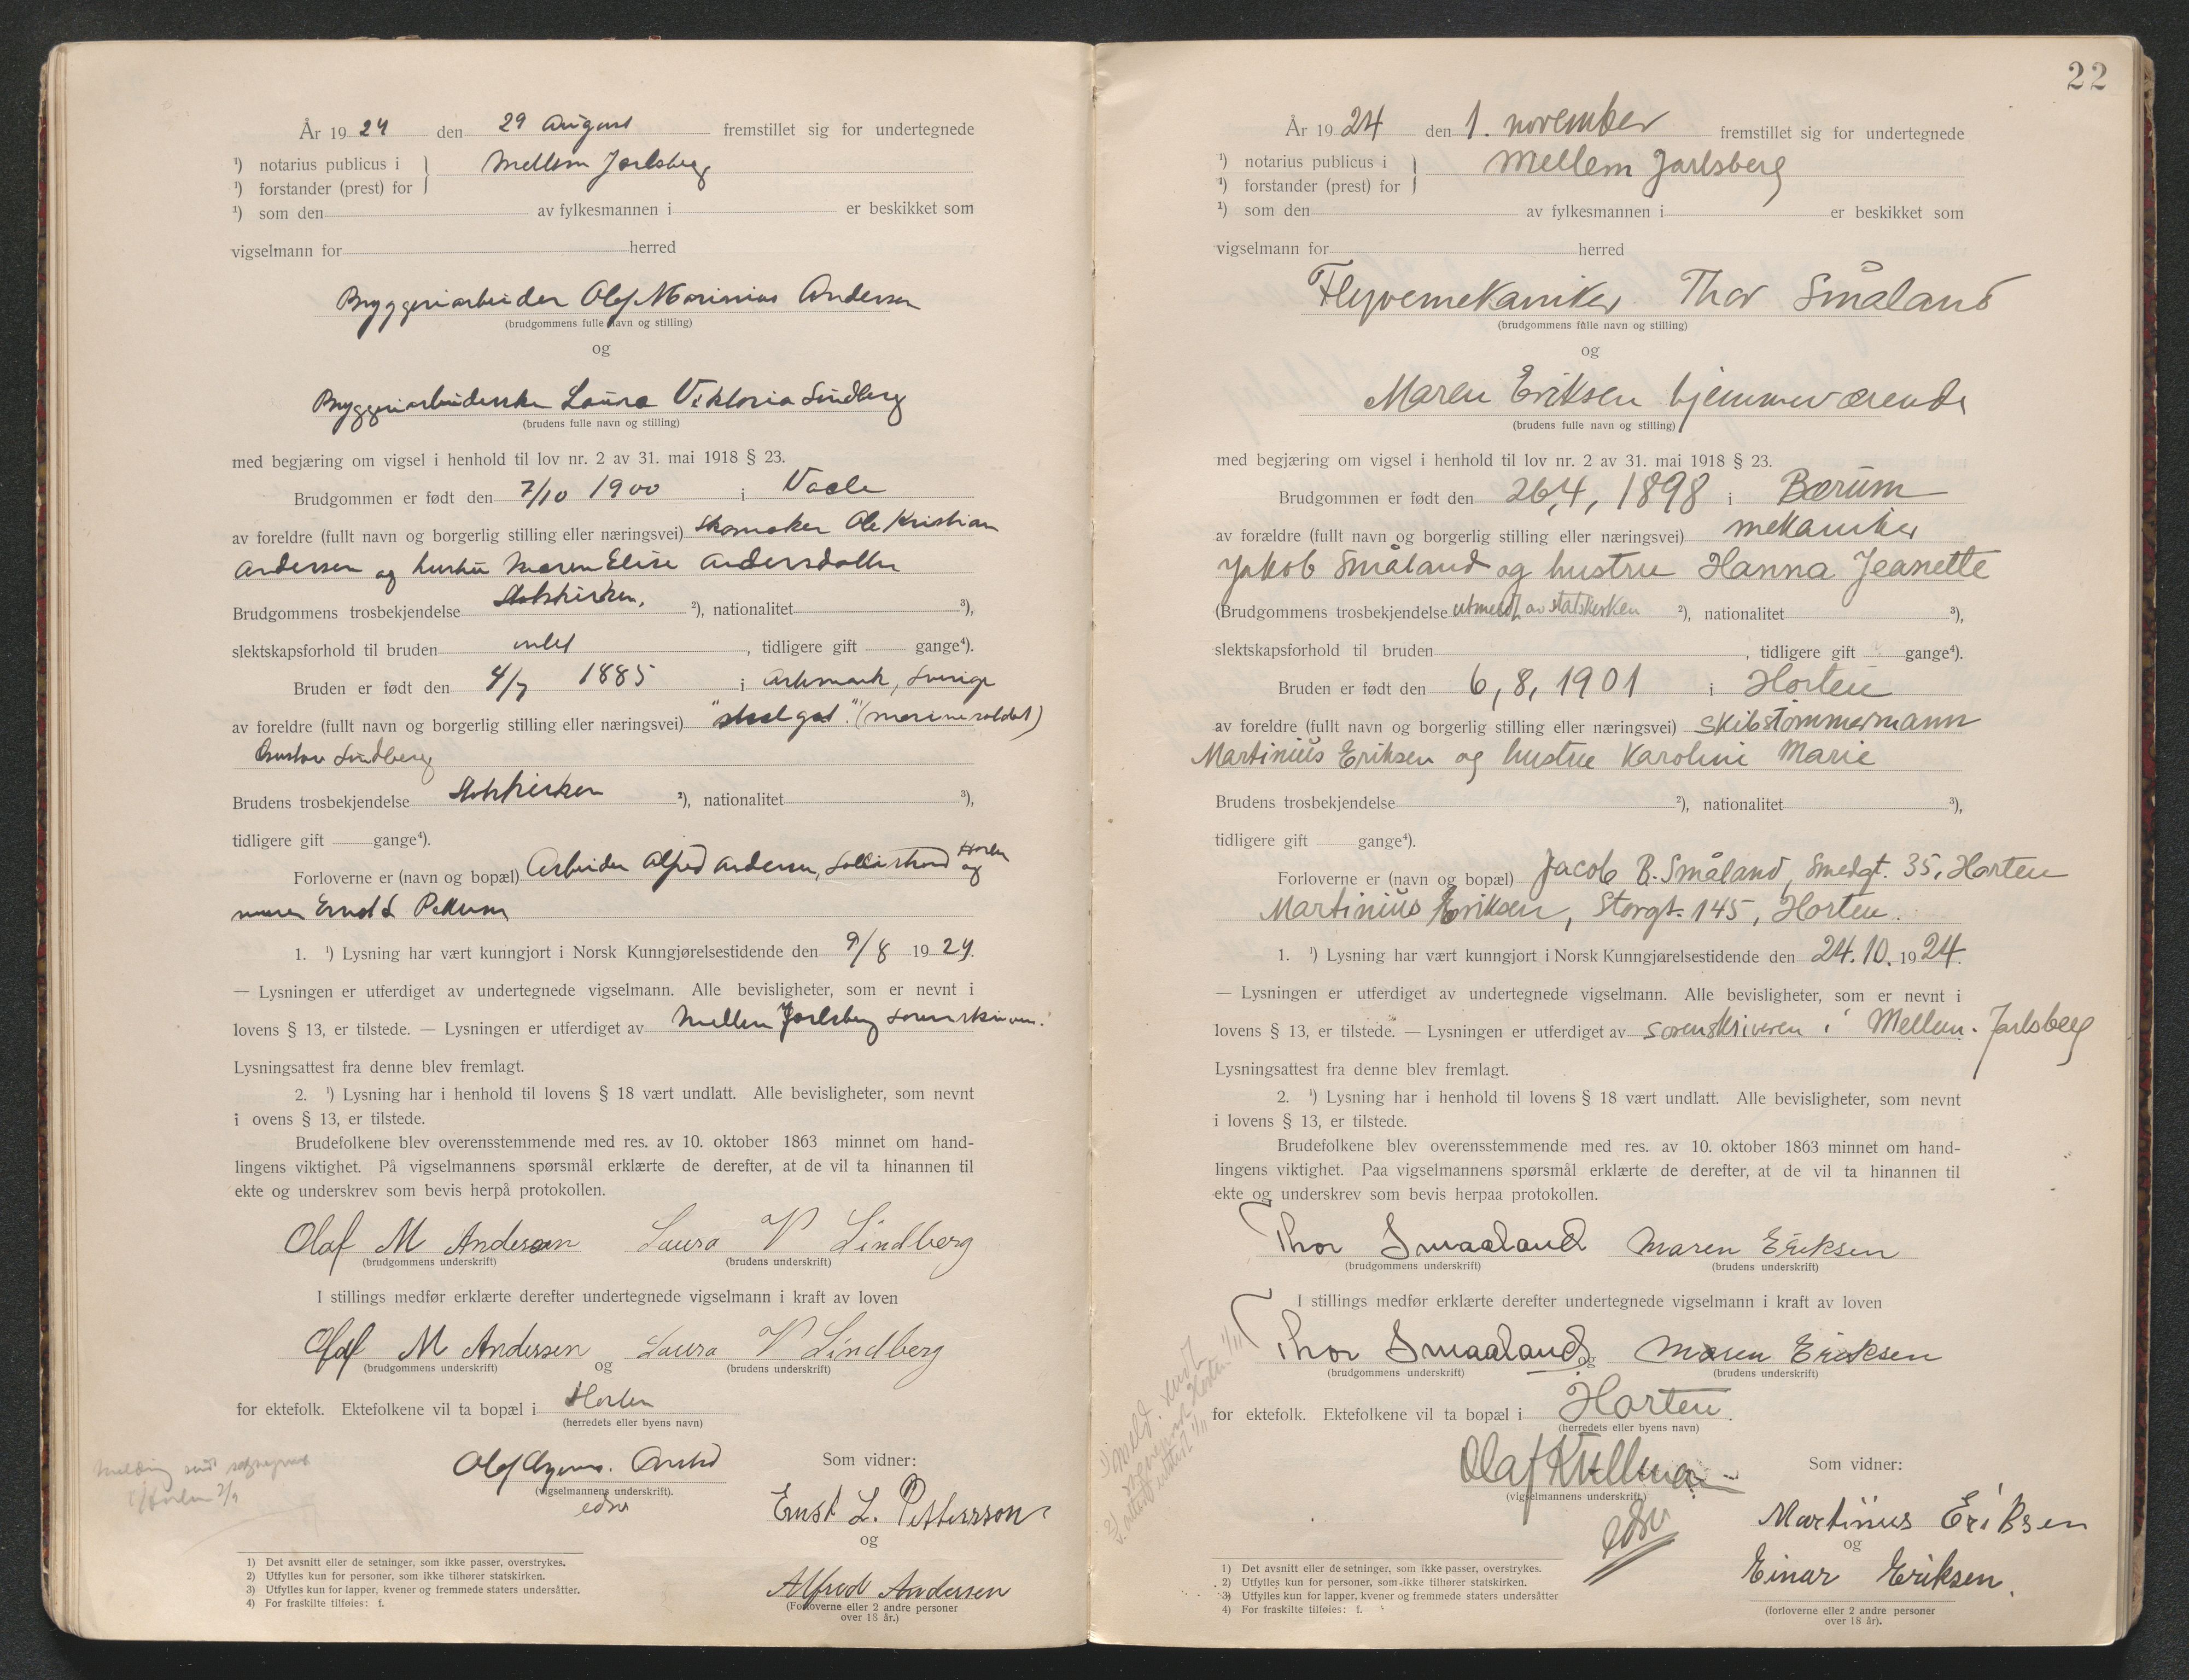 År 1924 den 29 August fremstillet sig for undertegnede
¹) notarius publicus i } Mellem Jarlsberg
¹) forstander (prest) for
¹) som den av fylkesmannen i er beskikket som
vigselmann for herred
Bryggeriarbeider Olaf Marinius Andersen
(brudgommens fulle navn og stilling)
og
Bryggeriarbeiderske Laura Viktoria Lindberg
(brudens fulle navn og stilling)
med begjæring om vigsel i henhold til lov nr. 2 av 31. mai 1918 § 23.
Brudgommen er født den 7/10 1900 i Vaale
av foreldre (fullt navn og borgerlig stilling eller næringsvei) Skomaker Ole Kristian
Andersen og hustru Maren Elise Andersdatter
Brudgommens trosbekjendelse Statskirken, ²), nationalitet ³),
slektskapsforhold til bruden intet , tidligere gift gange⁴).
Bruden er født den 4/7 1885 i Arkmark, Sverige
av foreldre (fullt navn og borgerlig stilling eller næringsvei) (marinesoldat)
Gustav Lindberg
Brudens trosbekjendelse Statskirken ²), nationalitet ³),
tidligere gift gange⁴).
Forloverne er (navn og bopæl) Arbeider Alfred Andersen, Sollistrand Horten og
murer
1. ¹) Lysning har vært kunngjort i Norsk Kunngjørelsestidende den 9/8 1924.
— Lysningen er utferdiget av undertegnede vigselmann. Alle bevisligheter, som er nevnt i
lovens § 13, er tilstede. — Lysningen er utferdiget av Mellem Jarlsberg sorenskriveri.
Lysningsattest fra denne blev fremlagt.
2. ¹) Lysning har i henhold til lovens § 18 vært undlatt. Alle bevisligheter, som nevnt
i ovens § 13, er tilstede.
Brudefolkene blev overensstemmende med res. av 10. oktober 1863 minnet om hand-
lingens viktighet. På vigselmannens spørsmål erklærte de derefter, at de vil ta hinannen til
ekte og underskrev som bevis herpå protokollen.
Olaf M Andersen Laura V Lindberg
(brudgommens underskrift) (brudens underskrift)
I stillings medfør erklærte derefter undertegnede vigselmann i kraft av loven
Olaf M Andersen og Laura V Lindberg
(brudgommens underskrift) (brudens underskrift)
for ektefolk. Ektefolkene vil ta bopæl i Horten
(herredets eller byens navn)
(vigselmannens underskrift).
edsv
Som vidner:
Ernst L. Pettersson
og
Alfred Andersen
(Forloverne eller 2 andre personer
over 18 år.)
1) Det avsnitt eller de setninger, som ikke passer, overstrykes.
2) Utfylles kun for personer, som ikke tilhører statskirken.
3) Utfylles kun for lapper, kvener og fremmede staters undersåtter.
4) For fraskilte tilføies: f.
22
År 1924 den 1. november fremstillet sig for undertegnede
¹) notarius publicus i } Mellem Jarlsberg
¹) forstander (prest) for
¹) som den av fylkesmannen i er beskikket som
vigselmann for herred
Flyvemekaniker Thor Småland
(brudgommens fulle navn og stilling)
og
Maren Eriksen hjemmeværende
(brudens fulle navn og stilling)
med begjæring om vigsel i henhold til lov nr. 2 av 31. mai 1918 § 23.
Brudgommen er født den 26,4, 1898 i Bærum
av forældre (fullt navn og borgerlig stilling eller næringsvei) mekaniker
Jakob Småland og hustru Hanna Jeanette
(Brudgommens trosbekjendelse utmeldt av statskirken ²), nationalitet ³),
slektskapsforhold til bruden , tidligere gift gange⁴).
Bruden er født den 6, 8, 1901 i Horten
av foreldre (fullt navn og borgerlig stilling eller næringsvei) skibstømmermann
Martinius Eriksen og hustru Karoline Marie
Brudens trosbekjendelse ²), nationalitet ³),
tidligere gift gange⁴).
Forloverne er (navn og bopæl) Jacob B. Småland, Smedgt. 35, Horten
Martinius Eriksen, Storgt. 145, Horten.
1. ¹) Lysning har vært kunngjort i Norsk Kunngjørelsestidende den 24.10. 1924.
— Lysningen er utferdiget av undertegnede vigselmann. Alle bevisligheter, som er nevnt i
lovens § 13, er tilstede. — Lysningen er utferdiget av sorenskriveren i Mellem-Jarlsberg
Lysningsattest fra denne blev fremlagt.
2. ¹) Lysning har i henhold til lovens § 18 vært undlatt. Alle bevisligheter, som nevnt
i lovens § 13, er tilstede.
Brudefolkene blev overensstemmende med res. av 10. oktober 1863 minnet om hand-
lingens viktighet. Paa vigselmannens spørsmål erklærte de derefter, at de vil ta hinannen til
ekte og underskrev som bevis herpaa protokollen.
Thor Smaaland Maren Eriksen
(brudgommens underskrift) (brudens underskrift)
I stillings medfør erklærte derefter undertegnede vigselmann i kraft av loven
Thor Smaaland og Maren Eriksen
(brudgommens underskrift) (brudens underskrift)
for ektefolk. Ektefolkene vil ta bopæl i Horten.
(herredets eller byens navn)
Olaf Kullman
(vigselmannens underskrift)
edsv
Som vidner:
Martinius Eriksen
og
Einar Eriksen.
(forloverne eller 2 andre personer
over 18 år).
1) Det avsnitt eller de setninger, som ikke passer, overstrykes.
2) Utfylles kun for personer, som ikke tilhører statskirken.
3) Utfylles kun for lapper, kvener og fremmede staters undersåtter
4) For fraskilte tilføies: f.